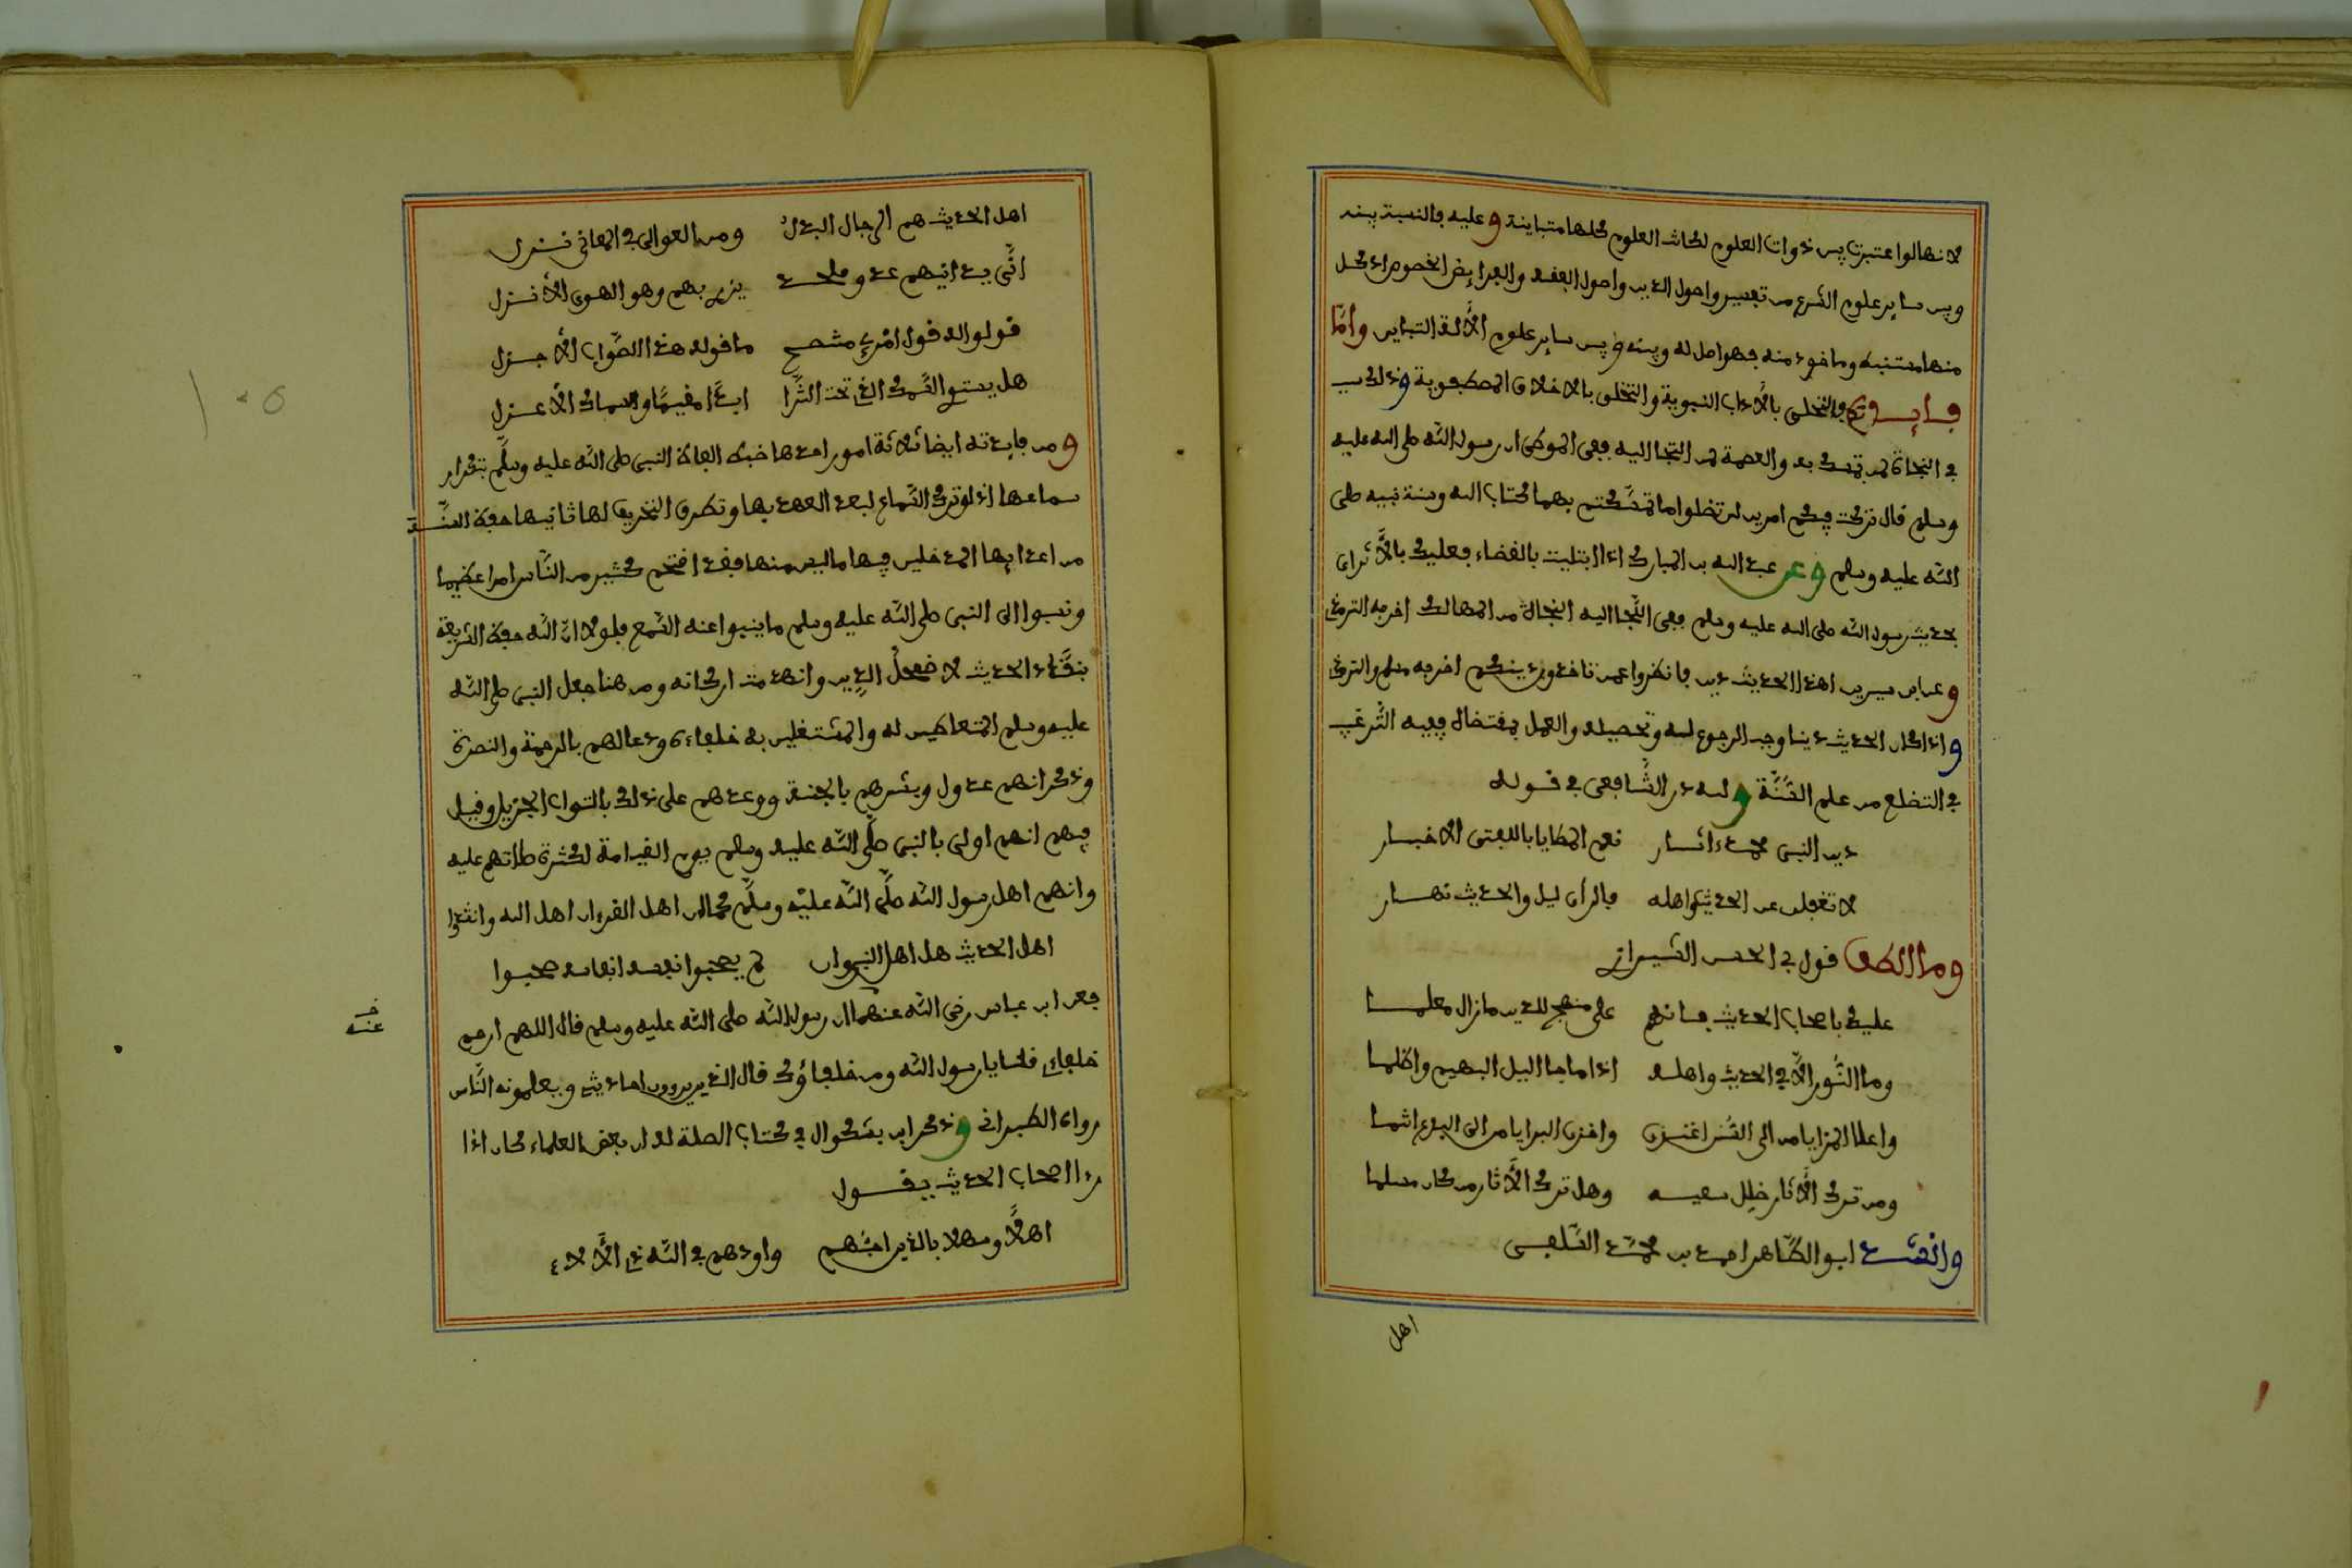 لانها لو اعتبرت بين ذوات العلوم لكانت العلوم كلها متباينة وعليه فالنسبة بينه
وبين ساير علوم الشرع من تفسير واصول الدين واصول الفقه والفرايض الخصوص اذ كل
منها مستنبط وماخوذ منه فهو اصل له وبينه وبين ساير علوم الآلة التباين وأمّا
فايدته فالتحلى بالآداب النبوية والتخلق بالاخلاق المصطفوية وذلك سبب
في النجاة لمن تمسك به والعصمة لمن التجا اليه ففى الموطى ان رسول الله صلى الله عليه
وسلم قال تركت فيكم امرين لن تضلوا ما تمسّكتم بهما كتاب الله وسنة نبيه صلى
الله عليه وسلم وعن عبد الله بن المبارك اذا ابتليت بالقضاء فعليك بالأثر اى
بحديث رسول الله صلى الله عليه وسلم ففى التّجا اليه النجاة من المهالك اخرجه الترمذى
وعن ابن سيرين ان هذا الحديث دين فانظروا عمن تاخذون دينكم اخرجه مسلم والترمذى
واذا كان الحديث دينا وجب الرجوع اليه وتحصيله والعمل بمقتضاه ففيه التّرغيب
في التضلع من علم السّنّة ولله در الشّافعى في قوله
دين النبى محمد اثار نعم المطايا للفتى الاخبار
لا تغفلن عن الحديث واهله فالرأى ليل والحديث نهار
وما الطف قول ابي الحسن الشيرازى
عليك باصحاب الحديث فانهم على منهج للدين ما زال معلما
وما النّور الّا في الحديث واهله اذا ما دجا اليل البهيم واظلما
واعلا البرايا من الى السّنن اعتزى واغزى البرايا من الى البدع انتما
ومن ترك الآثار ضلل سعيه وهل ترك الآثار من كان مسلما
وانشد ابو الطّاهر احمد بن محمّد السّلفى
اهل
اهل الحديث هم الرجال البدل ومن العوالى في المعانى نزل
انّى يدانيهم عدو ملحد يزرى بهم وهو الهوى الأنزل
قولوا له قول امرئ متنصح ما قوله هذا الصّواب الأجزل
هل يستوى السّمك الذى تحت الثّرا ابدًا مقيمًا والسماك الأعزل
ومن فايدته ايضا ثلاثة امور احدها ضبط الفاظ النبى صلى الله عليه وسلّم بتكرار
سماعها اذ لو ترك السّماع لبعد العهد بها وتطرق التحريف لها ثانيها حفظ السنّة
من اعدايها المدخلين فيها ما ليس منها فقد اقتحم كثير من النّاس امرا عظيما
ونسبوا الى النبى صلى الله عليه وسلم ما ينبوا عنه السّمع فلولا انّ الله حفظ الشريعة
بنقّاد الحديث لاضمحلّ الدّين وانهدمت اركانه ومن هنا جعل النبى صلى الله
عليه وسلم المتعاطين له والمشتغلين به خلفاءه ودعا لهم بالرحمة والنصرة
وذكر انهم عدول وبشرهم بالجنة ووعدهم على ذلك بالثواب الجزيل وقيل
فيهم انهم اولى بالنبى صلّى الله عليه وسلم يوم القيامة لكثرة صلاتهم عليه
وانهم اهل رسول الله صلّى الله عليه وسلّم كما ان اهل القرءان اهل الله وانشدوا
اهل الحديث هل اهل النبى وان لم يصحبوا نفسه انفاسه صحبوا
فعن ابن عباس رضى الله عنهما ان رسول الله صلى الله عليه وسلم قال اللهم ارحم
خلفاءى قلنا يا رسول الله ومن خلفاؤك قال الذين يروون احاديثى ويعلمونه النّاس
رواه الطبرانى وذكر ابن بشكوال في كتاب الصلة له ان بعض العلماء كان اذا
رءا اصحاب الحديث يقول
اهلًا وسهلا بالذين احبّهم واودهم في الله ذى الآلاء
عنه